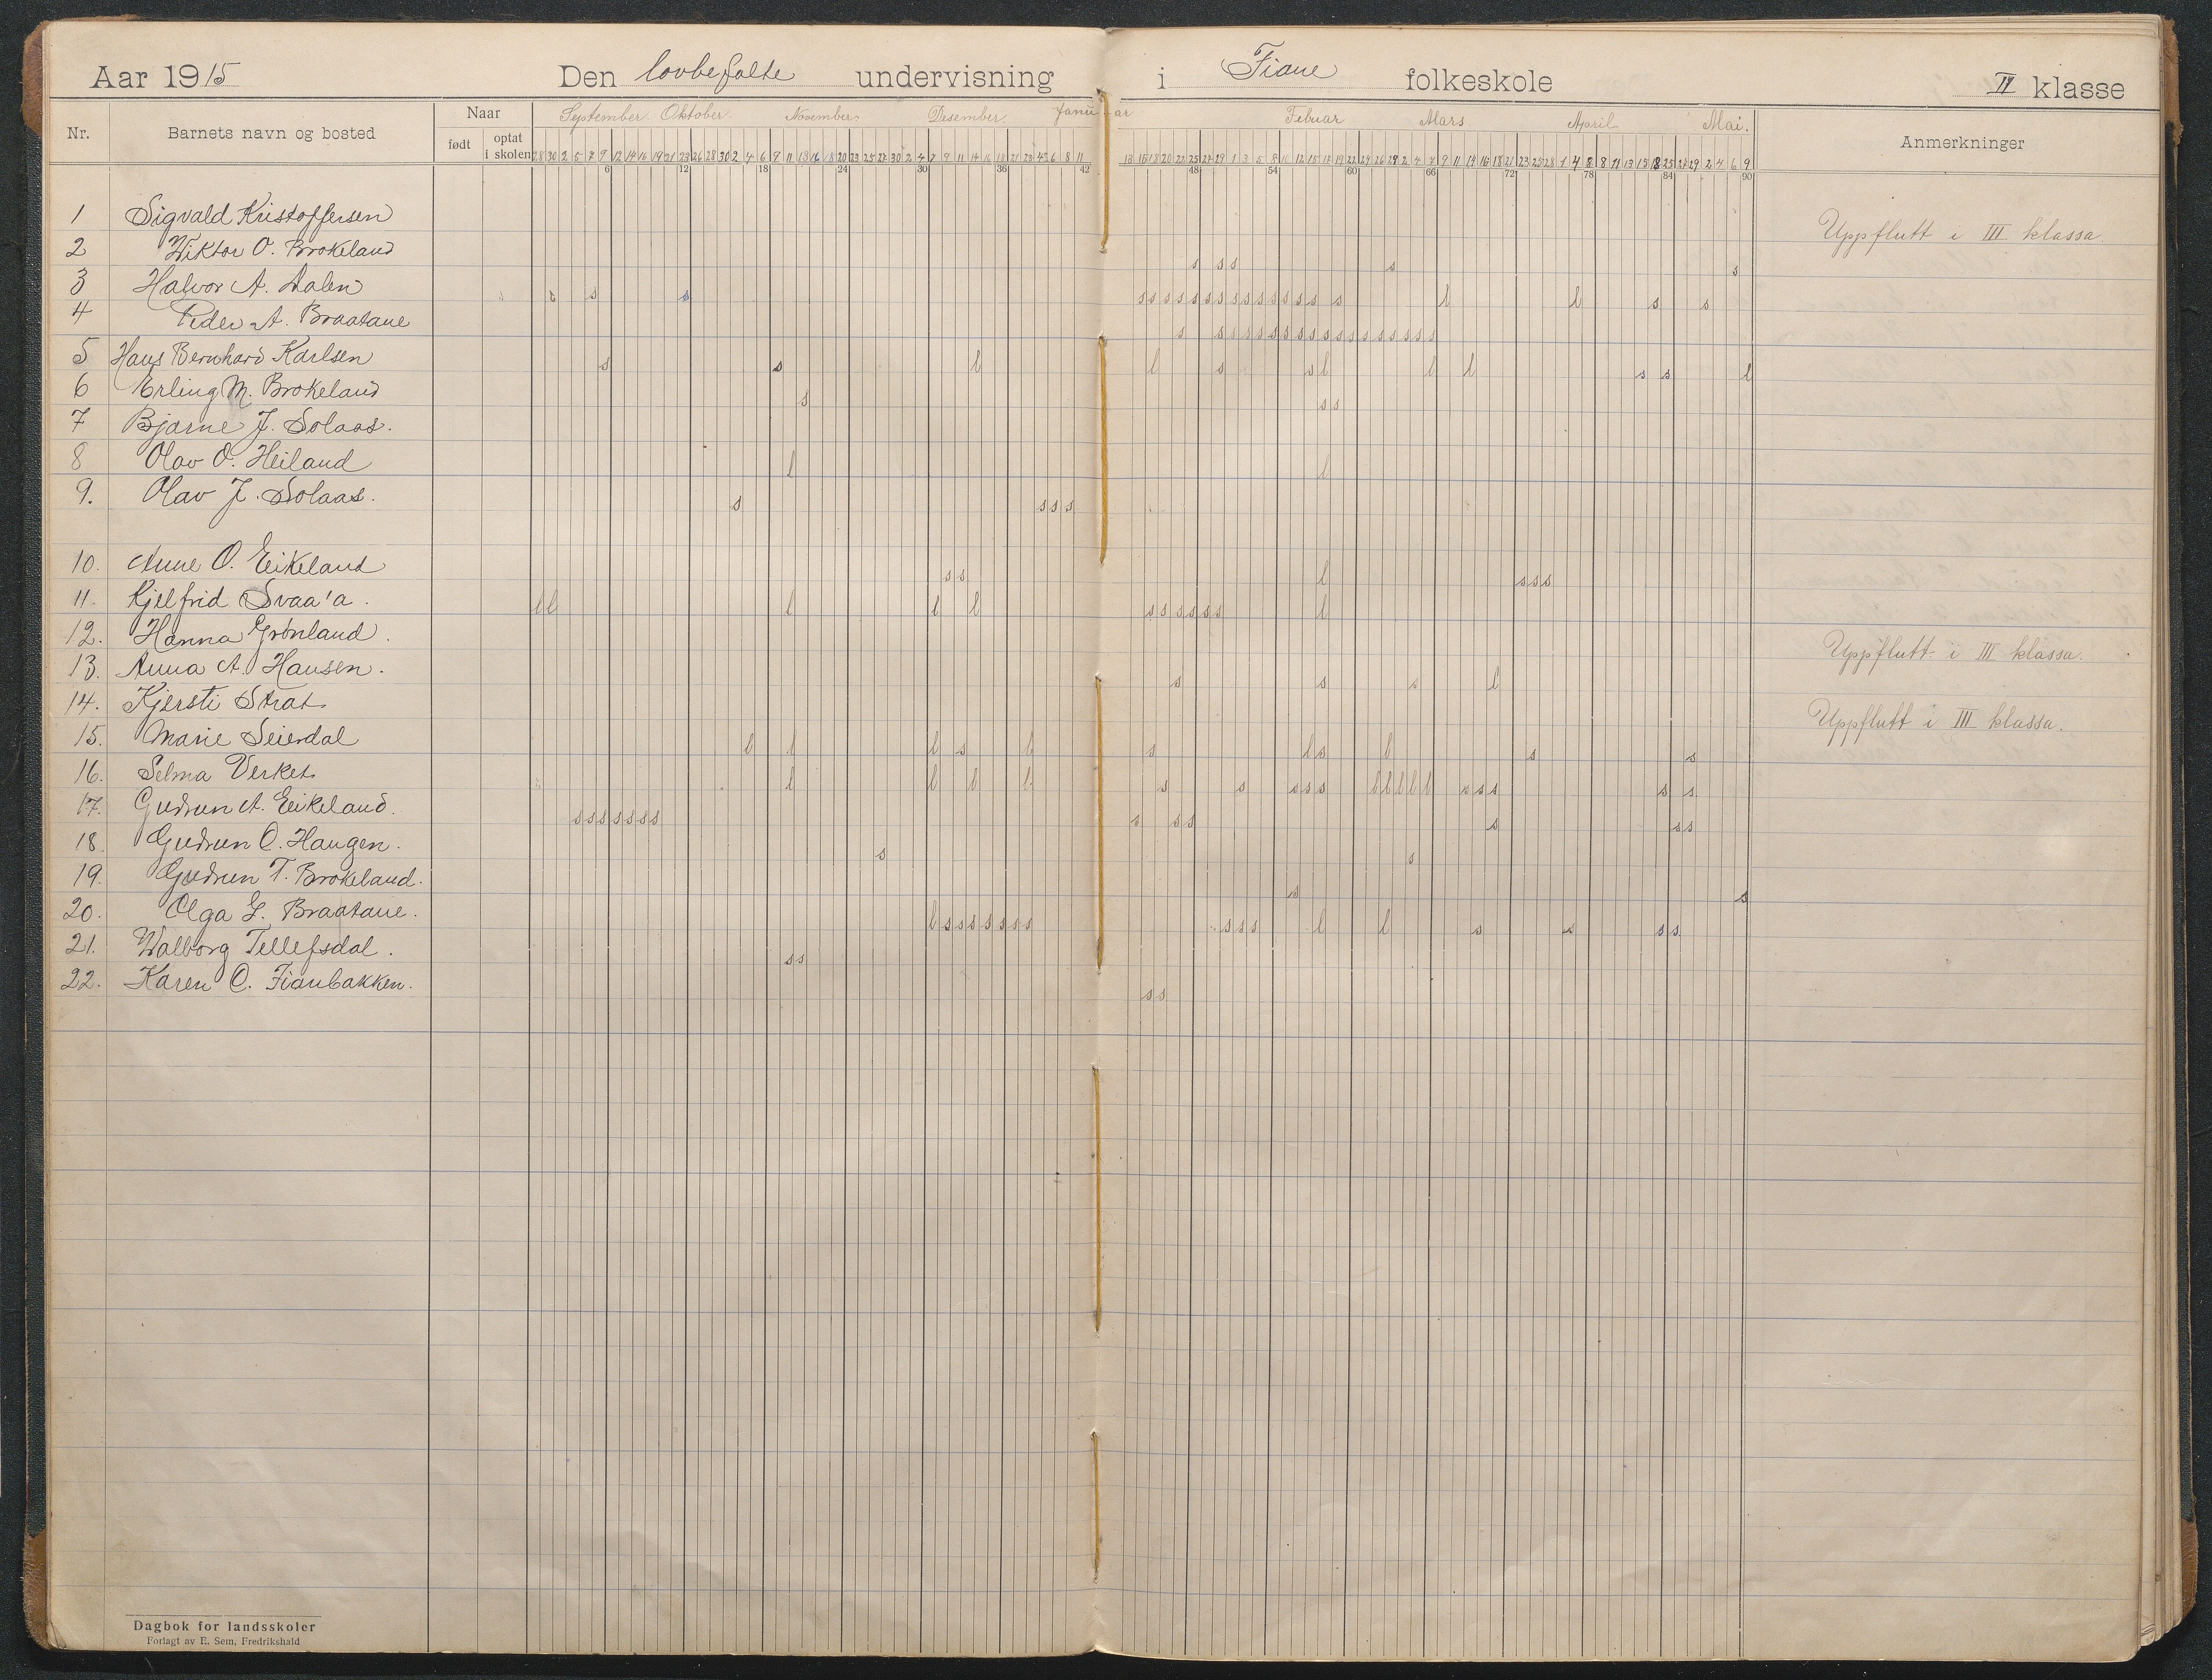 Aar 1915 Den lovbefalte undervisning i Fiane folkeskole II klasse
Nr. Barnets navn og bosted Naar født optat i skolen September. Oktober. November. Desember. Januar Februar Mars. April Mai. Anmerkninger
6 12 18 24 30 36 42 48 54 60 66 72 78 84 90
1 Sigvald Kristoffersen Uppflutt i III klassa
2 Wiktor O. Brokeland s s s s s
3 Halvor A. Dalen
4 Peder A. Braatane
5 Hans Bernhard Karlsen s s l l s s l l l s s l
6 Erling M. Brokeland s s s
7 Bjarne J. Solaas.
8 Olav O. Heiland l l
9. Olav J. Solaas. s s s s
10. Anne O. Eikeland s s l s s s
11. Kjelfrid Svaa'a. l l l l l s s s s s s l
12. Hanna Grønland. Uppflutt i III klassa.
13. Anna A. Hansen. s s s l
14. Kjersti Strat Uppflutt i III klassa.
15. Marie Seierdal l l l s l s l s l s s
16. Selma Verket l l l l s s s s s l l l l l s s s s s
17. Gudrun A. Eikeland. s s s s s s s s s s s s s
18. Gudrun C. Haugen. s s
19. Gudrun T. Brokeland. s s
20. Olga G. Braatane. l s s s s s s s s s s l l s s s s
21. Walborg Tellefsdal. s s
22. Karen C. Fianbakken. s s
Dagbok for landsskoler
Forlagt av E. Sem, Fredrikshald